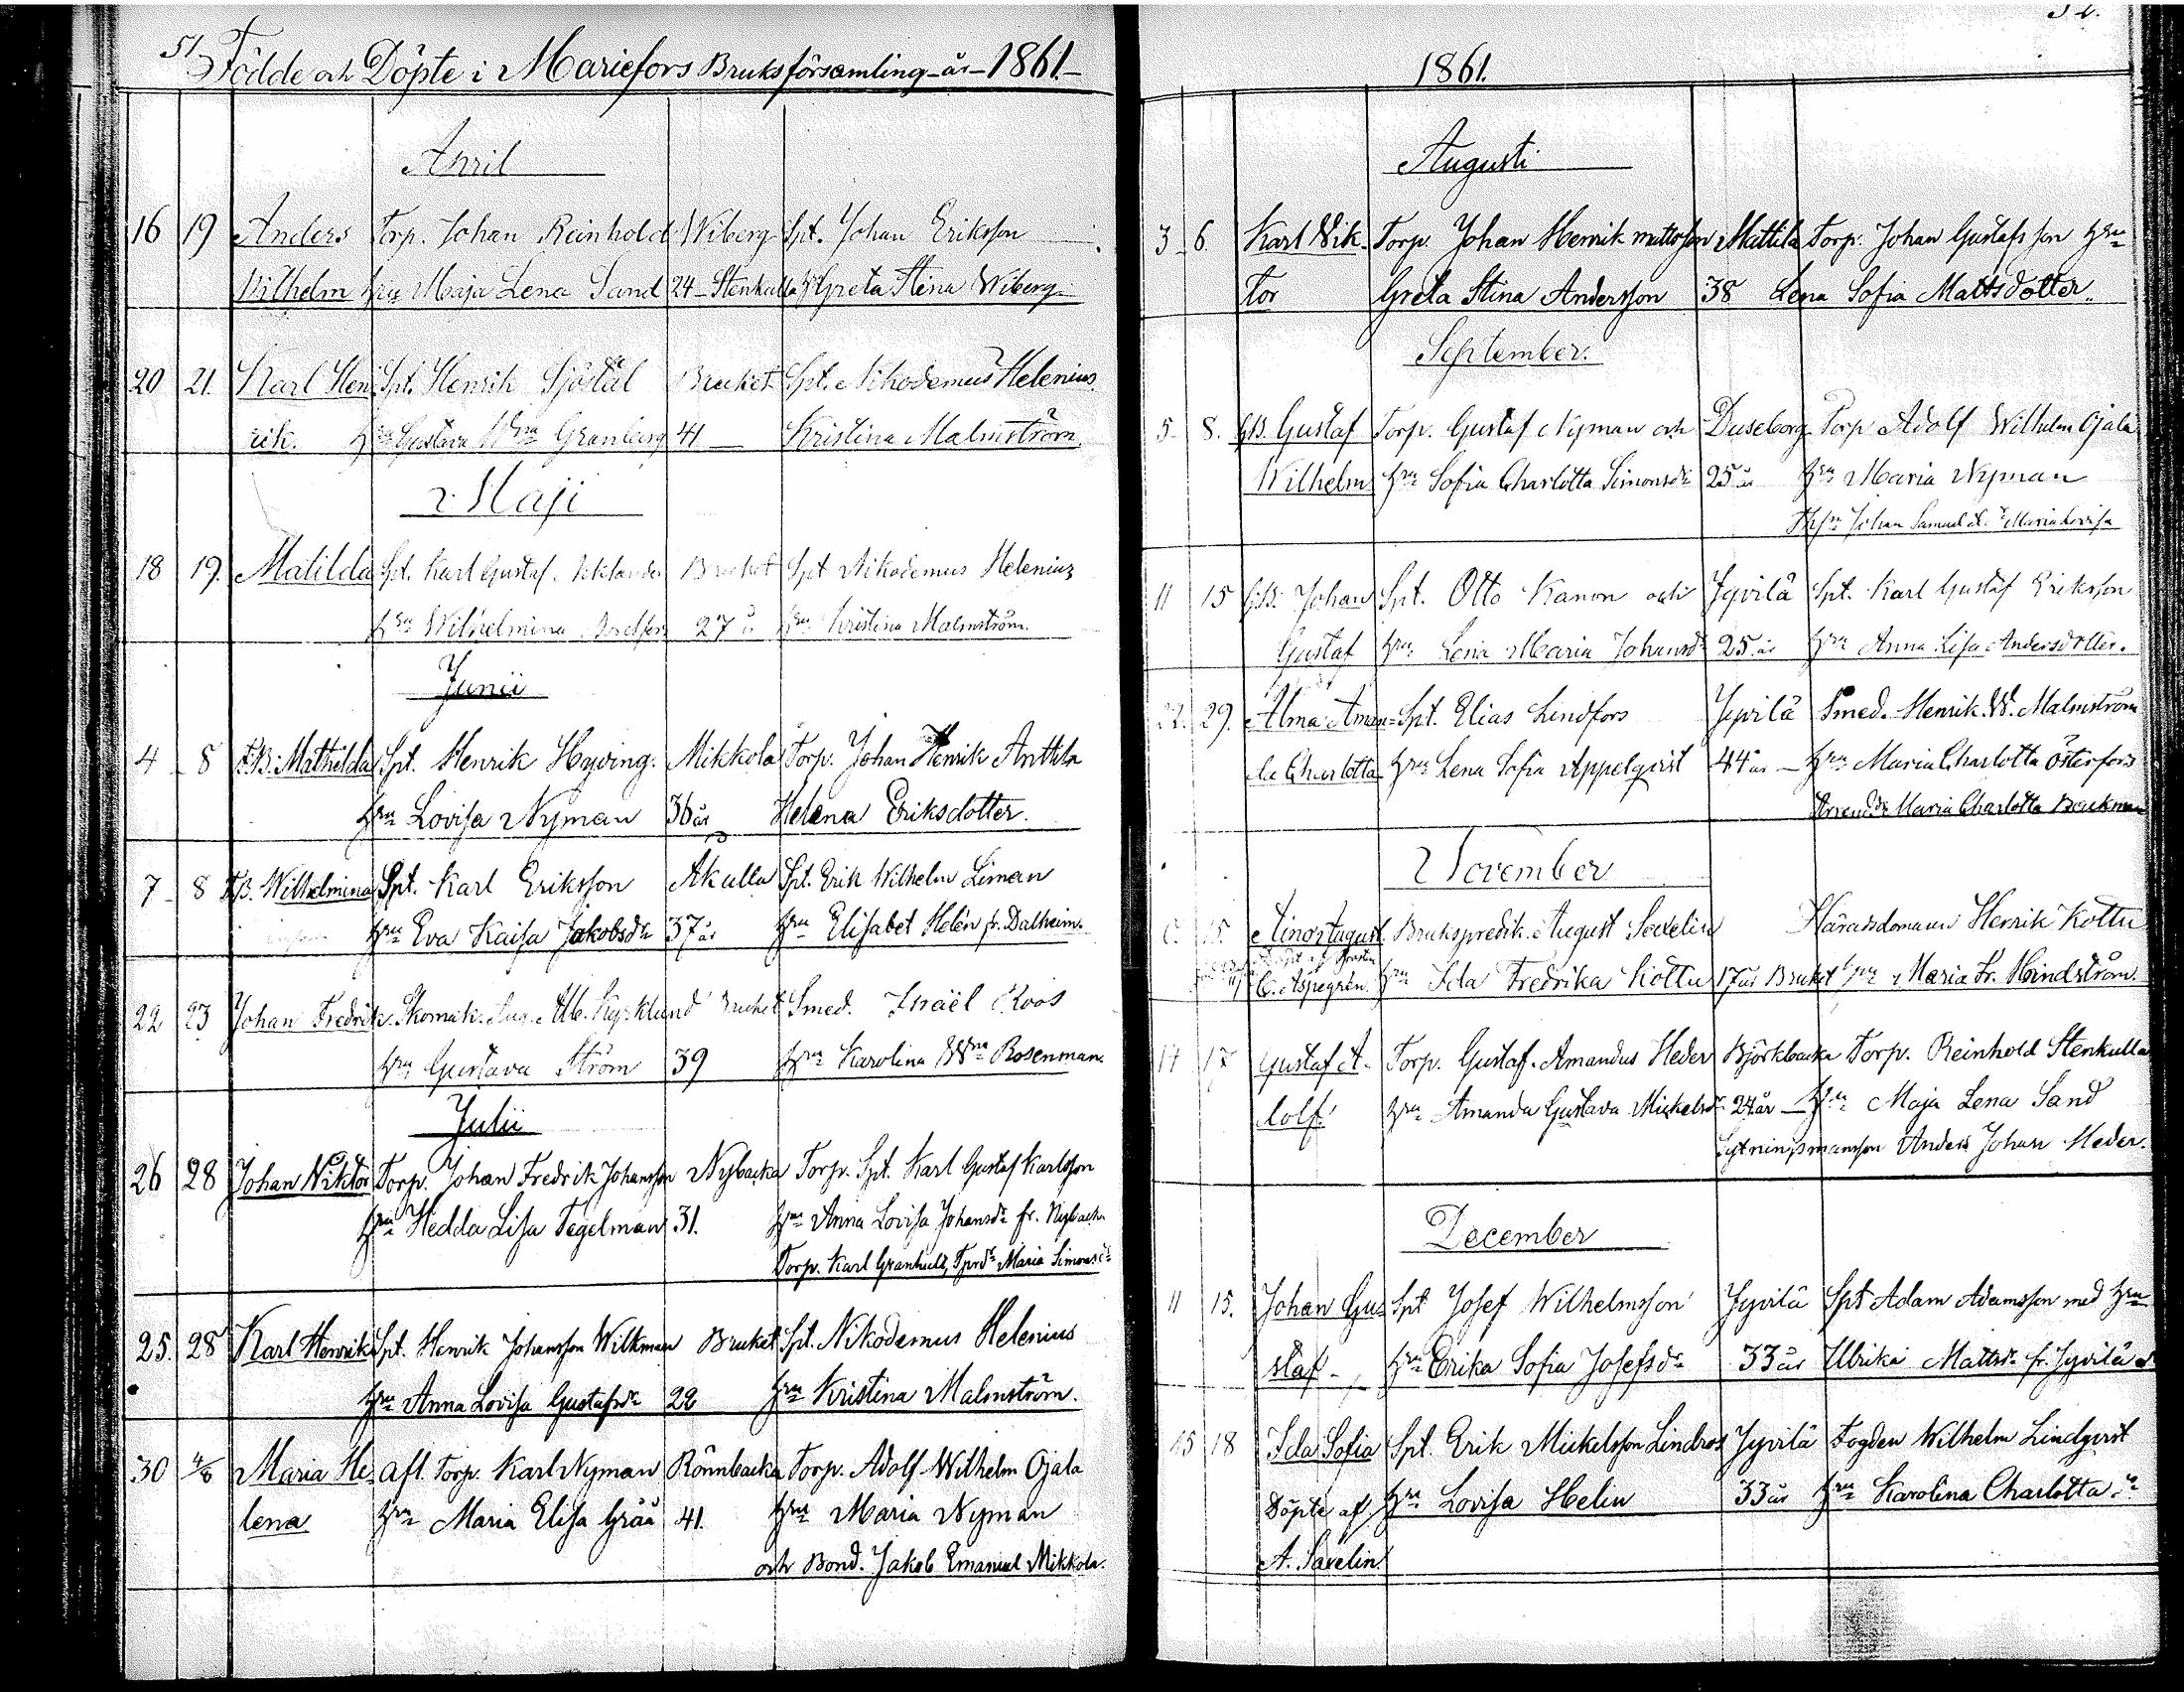 51
Födde och Döpte i Mariefors Bruksförsamling år 1861.
April
16 19 Anders Torp. Johan Reinhold Wiberg Spt. Johan Eriksson
Vilhelm hru Maja Lena Sand 24 - Stenkulla Greta Stina Wiberg.
20 21. Karl Hen Spt. Henrik Sjöstål Bruket Spt. Nikodemus Helenius
rik. hru Gustava Granberg 41 — Kristina Malmström
Maji
18 19. Matilda Spt. Karl Gustaf Bruket Spt Nikodemus Helenius
hru Wilhelmina 27 år hru Kristina Malmström.
Junii
4 - 8 F.B. Mathilda Spt. Henrik Hyving. Mikkola Torp. Johan Henrik Anttila
hru Lovisa Nyman 36 år Helena Eriksdotter.
7 - 8 F.B. Wilhelmina Spt. Karl Eriksson Akulla Spt. Erik Wilhelm Liman
hru Eva Kaisa Jakobsdr 37 år hru Elisabet Helén fr. Dalheim.
22 23 Johan Fredrik Skomak. Aug. Alb. Kyrklund Bruket Smed. Israël Roos
hru Gustava Ström 39 hru Karolina Wna Rosenman.
Julii
26 28 Johan Viktor Torp. Johan Fredrik Johansson Nybacka Torp. Spt. Karl Gustaf Karlsson
hru Hedda Lisa Tegelman 31. hru Anna Lovisa Johansdr fr. Nybacka
Torp. Karl Granhult, Maria Simonsdr
25. 28 Karl Henrik Spt. Henrik Johansson Wilkman Bruket Spt. Nikodemus Helenius
hru Anna Lovisa Gustafsdr 22 hru Kristina Malmström.
30 4/8 Maria He- afl. Torp. Karl Nyman Rönnbacka Torp. Adolf Wilhelm Ojala
lena hru Maria Elisa Grää 41. hru Maria Nyman
och Bond. Jakob Emanuel Mikkola.
1861.
Augusti
3 - 6. Karl Wik- Torp. Johan Henrik Mattsson Mattila Torp. Johan Gustafsson hru
tor Greta Stina Andersson 38 Lena Sofia Mattsdotter.
September.
5 - 8. G.B. Gustaf Torp. Gustaf Nyman och Duseborg Torp Adolf Wilhelm Ojala
Wilhelm hru Sofia Charlotta Simonsdr 25 år hru Maria Nyman
Johan Samuel Maria Lovisa
11 15 G.B. Johan Spt. Otto Kanon och Jyvilä Spt. Karl Gustaf Eriksson
Gustaf hru Lena Maria Johansdr 25 år hru Anna Lisa Andersdotter.
22. 29. Alma Aman= Spt. Elias Lindfors Jyvilä Smed. Henrik W. Malmström
da Charlotta hru Lena Sofia Appelqvist 44 år — hru Maria Charlotta Österfors
Maria Charlotta Beukman
November
15 Aino August. Brukspredik. August Saxelin Häradsdomaren Henrik Kottu
C. Aspegrén. hru Ida Fredrika Kottu 17 år Bruket hru Maria Fr. Hindström.
17 17 Gustaf A- Torp. Gustaf Amandus Heder Björkbacka Torp. Reinhold Stenkulla
dolf hru Amanda Gustava Mickelsdr 24 år — hru Maja Lena Sand
Anders Johan Heder.
December
11 15. Johan Gu= Spt Josef Wilhelmsson Jyvilä Spt Adam Adamsson med hru
staf - hru Erika Sofia Josefsdr 33 år Ulrika Mattsdr fr. Jyvilä
15 18 Ida Sofia Spt. Erik Mickelsson Lindros Jyvilä Fogden Wilhelm Lindqvist
Döpte af hru Lovisa Helin 33 år hru Karolina Charlotta
A. Saxelin.